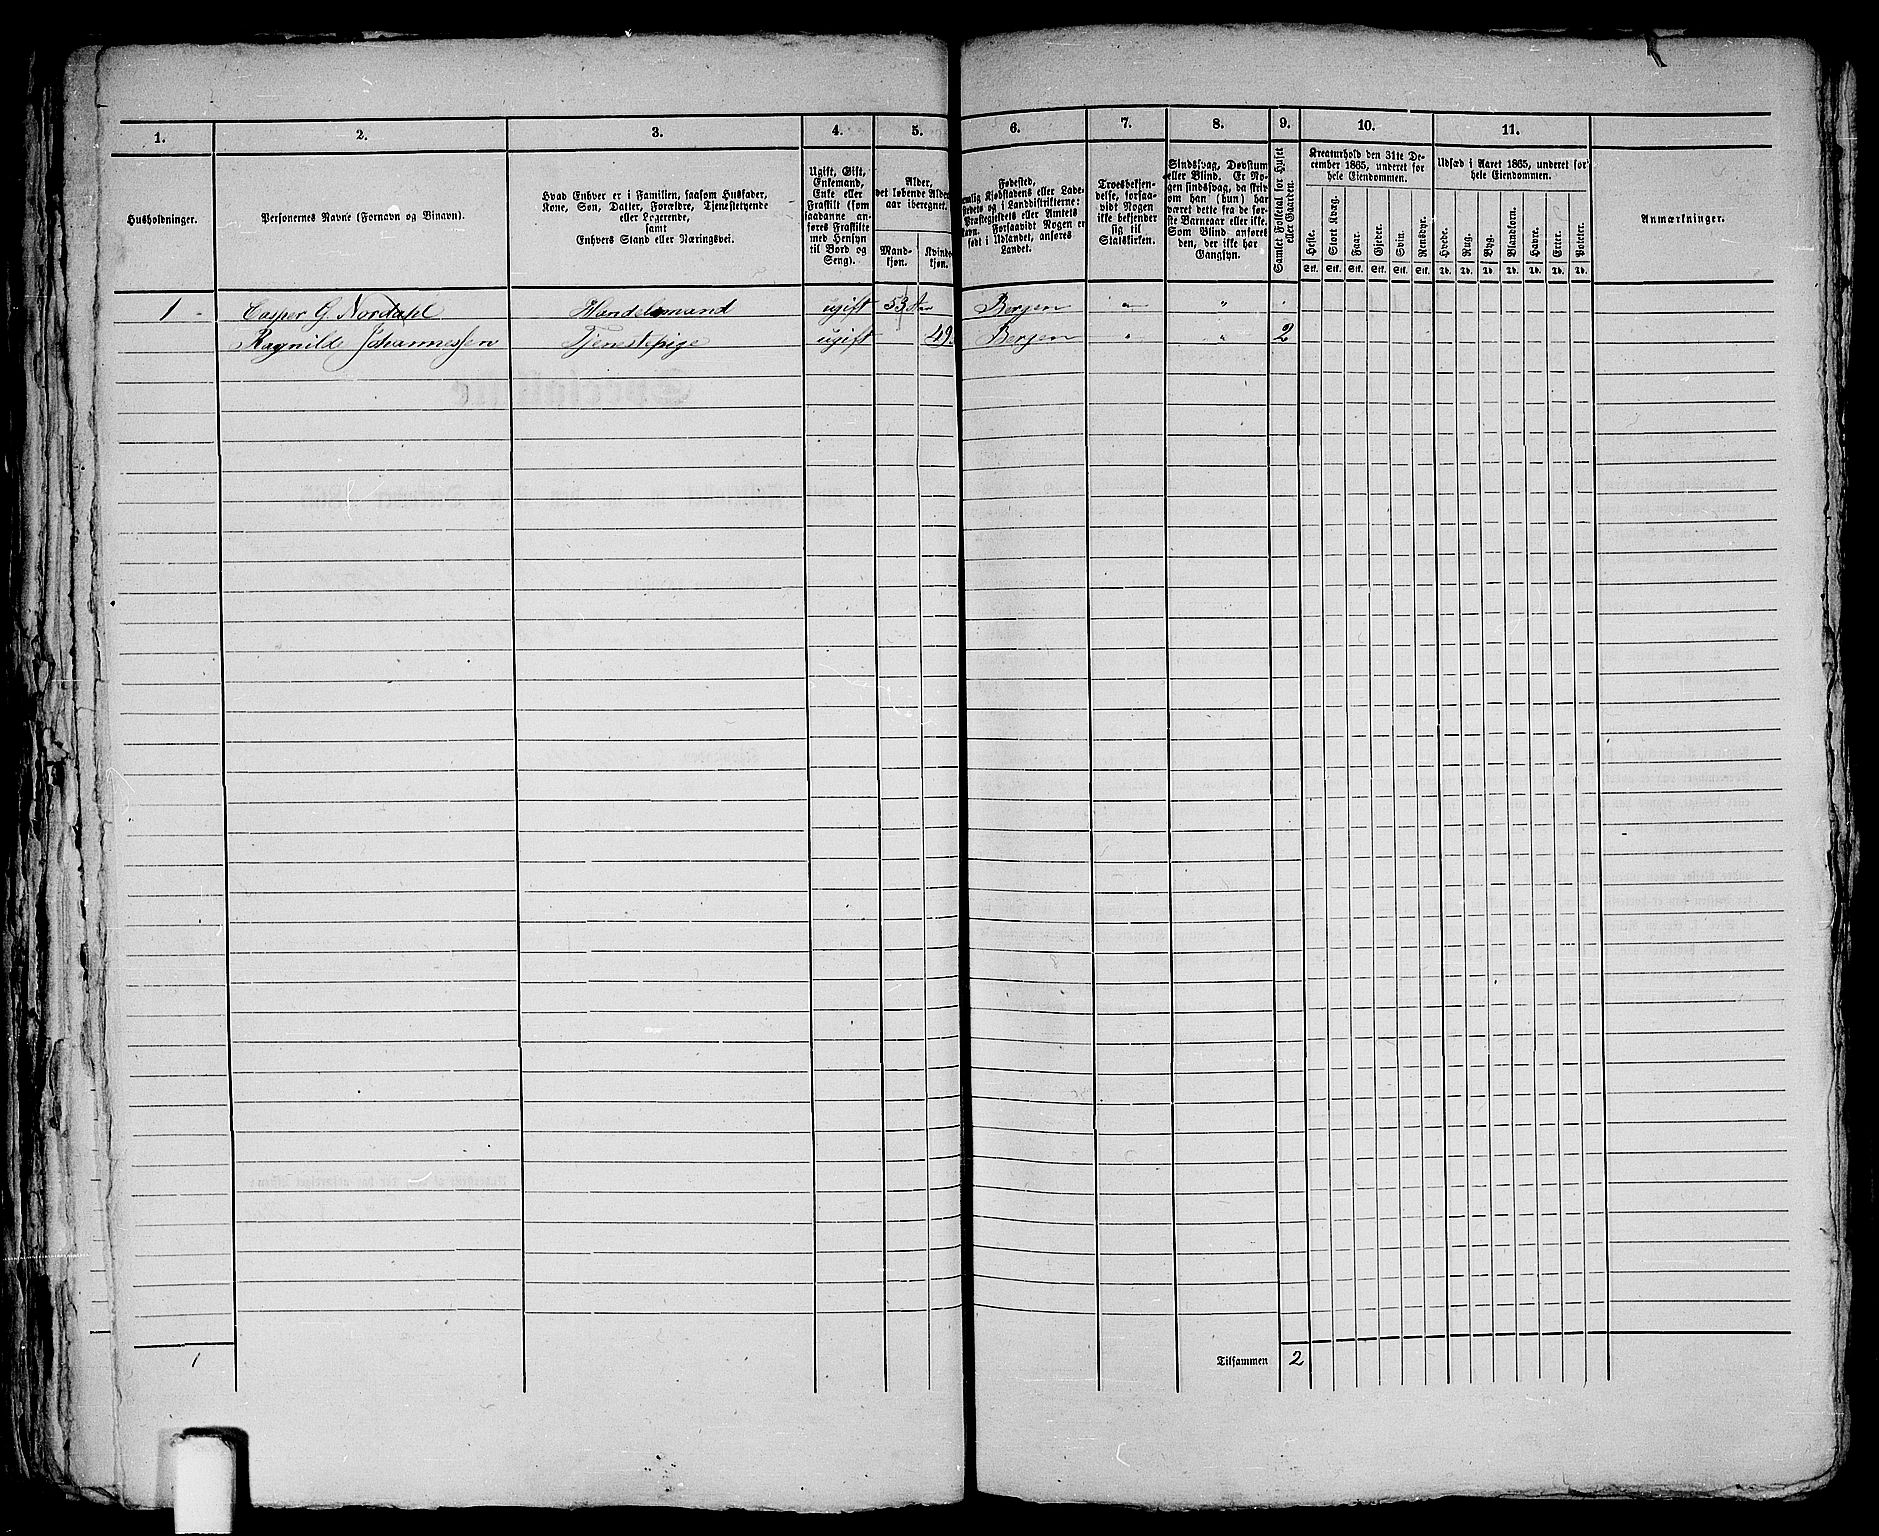 1. 2. 3. 4. 5. 6. 7. 8. 9. 10. 11.
Husholdninger.
Personernes Navne (Fornavn og Binavn).
Hvad Enhver er i Familien, saasom Husfader,
Kone, Søn, Datter, Forældre, Tjenestetyende
eller Logerende,
samt
Enhvers Stand eller Næringsvei.
Ugift, Gift,
Enkemand,
Enke eller
Fraskilt (som
saadanne an-
føres Fraskilte
med Hensyn
til Bord og
Seng).
Alder,
det løbende Alders-
aar iberegnet.
Mand-
kjøn.
Kvinde-
kjøn.
Fødested,
nemlig Kjøbstadens eller Lade-
stedets og i Landdistrikterne:
Præstegjeldets eller Amtets
Navn. Forsaavidt Nogen er
født i Udlandet, anføres
Landet.
Troesbekjen-
delse, forsaa-
vidt Nogen
ikke bekjender
sig til
Statskirken.
Sindssvag, Døvstum
eller Blind. Er No-
gen sindssvag, da skriv
om han (hun) har
været dette fra de før-
ste Barneaar eller ist.
Som Blind anføres
den, der ikke har
Gangsyn.
Samlet Folketal for Huset
eller Gaarden.
Kreaturhold den 31te De-
cember 1865, underet for
hele Eiendommen.
Heste. Stort Kvæg. Faar. Gjeder. Svin. Rensdyr.
Stk. Stk. Stk. Stk. Stk. Stk.
Udsæd i Aaret 1865, underet for
hele Eiendommen.
Hvede. Rug. Byg. Blandkorn. Havre. Erter. Poteter.
Td. Td. Td. Td. Td. Td. Td.
Anmærkninger.
1 Casper G. Nordahl Handelsmand ugift 53 Bergen " "
Ragnilde Johannessen Tjenestepige ugift 49 Bergen " " 2
1 Tilsammen 2